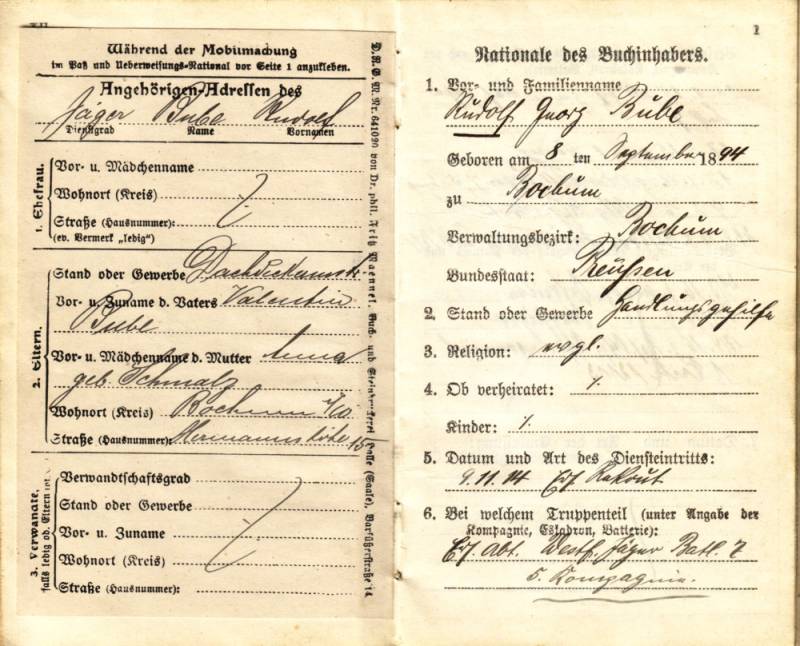 Während der Mobilmachung
im Paß und Ueberweisungs-National vor Seite 1 anzukleben.
Angehörigen-Adressen des
Jäger Bube Rudolf
Dienstgrad Name Vornamen
1. Ehefrau.
Vor- u. Mädchenname
Wohnort (Kreis)
Straße (Hausnummer):
(ev. Vermerk „ledig“)
2. Eltern.
Stand oder Gewerbe Dachdeckermstr
Vor- u. Zuname d. Vaters Valentin
Bube
Vor- u. Mädchenname d. Mutter Anna
geb. Schmalz
Wohnort (Kreis) Bochum
Straße (Hausnummer): Hermannshöhe 15
3. Verwandte,
falls ledig od. Eltern tot.
Verwandtschaftsgrad
Stand oder Gewerbe
Vor- u. Zuname
Wohnort (Kreis)
Straße (Hausnummer):
D. R. G. M. Nr. 641090 von Dr. phil. Fritz Maennel, Buch- und Steindruckerei, Halle (Saale), Barfüßerstraße 14
1
Nationale des Buchinhabers.
1. Vor- und Familienname
Rudolf Georg Bube
Geboren am 8 ten September 1894
zu Bochum
Verwaltungsbezirk: Bochum
Bundesstaat: Preußen
2. Stand oder Gewerbe Handlungsgehilfe
3. Religion: evgl.
4. Ob verheiratet: /.
Kinder: /.
5. Datum und Art des Diensteintritts:
9.11.14 Ers Rekrut
6. Bei welchem Truppenteil (unter Angabe der
Kompagnie, Eskadron, Batterie):
Ers Abt. Westf. Jäger Batl. 7
5. Kompagnie.